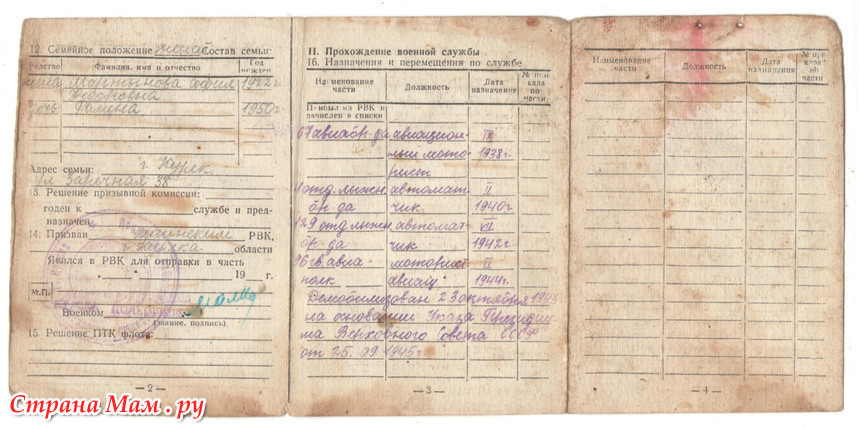 12. Семейное положение жена Состав семьи:
Родство Фамилия, имя и отчество Год рожден.
жена Мартынова София 1922г
дочь Галина 1950г
Адрес семьи:
ул Заречная 38
13. Решение призывной комиссии:
годен к службе и пред-
назначен
14. Призван РВК,
области
Явился в РВК для отправки в часть
19 г.
М.П.
Военком
(звание, подпись)
15. Решение ПТК флота:
— 2 —
II. Прохождение военной службы
16. Назначения и перемещения по службе
Наименование части Должность Дата назначения № приказа по части
Прибыл из РВК и зачислен в списки
67 авиабр-да авиацион- IX
ный мото- 1938г.
рист
отд лыжн автомат II
бр-да чик. 1940г
129 отд лыжн автомат- XII
бр-да чик 1942г
96 гв. авиа- моторист II
полк. авиац 1944г
Демобилизован 23 октября 1945
на основании Указа Президиу
ма Верховного Совета СССР
от 25.09 1945г
— 3 —
Наименование части Должность Дата назначения № приказа об части
— 4 —
Страна Мам.ру